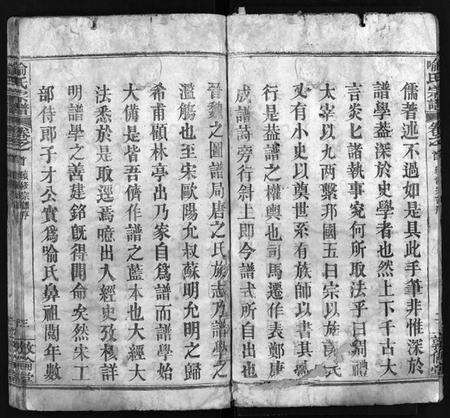 喻氏宗譜
卷之首
儒著述不過如是具此手筆非惟深於
譜學益深於史學者也然上下千古大
言炎炎諸執事究何所取法乎曰錫禮
太宰以九兩繫邦國五曰宗以族得民
小史以奠世系有族師以書其孝
行是益譜之權輿也司馬遷作表鄭康
成譜詩旁行斜上即今譜式所自出也
晉魏之圖譜局唐之氏族志乃譜學之
濫觴也至宋歐陽允叔蘇明允明之歸
希甫顧林亭出乃家自為譜而譜學始
大備是皆吾儕作譜之藍本也大經大
法悉於是取焉噫出入經史攷核詳
明譜學之善建銘既得聞命矣然宋工
部侍郎子才公實為喻氏鼻祖閱年數
喻氏宗譜
卷之首